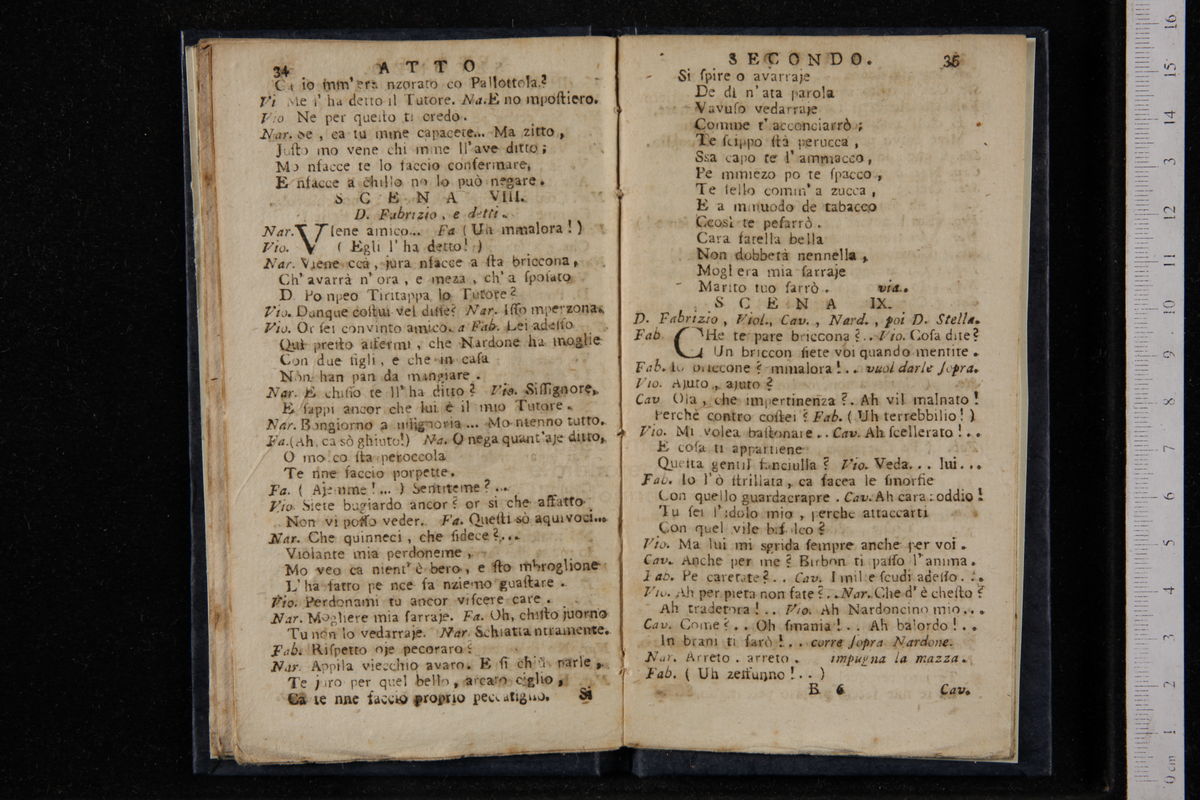 34 ATTO
Ca io mm' era nzorato co Pallottola?
Vi Me l' ha detto il Tutore. Na. E no mpoſtiero.
Vio Ne per queſto ti credo.
Nar. Se, ca tu mme capacete... Ma zitto,
Juſto mo vene chi mme ll'ave ditto;
Mo nfacce te lo faccio confermare,
E nfacce a chillo no lo può negare.
SCENA VIII.
D. Fabrizio, e detti.
Nar. VIene amico... Fa (Uh mmalora!)
Vio. (Egli l'ha detto!)
Nar. Viene ccà, jura nfacce a ſta briccona,
Ch' avarrà n'ora, e meza, ch'a ſpoſato
D. Pompeo Tiritappa lo Tutore?
Vio. Dunque coſtui vel diſſe? Nar. Iſſo mperzona.
Vio. Or ſei convinto amico. a Fab. Lei adeſſo
Quì preſto affermi, che Nardone ha moglie
Con due figli, e che in caſa
Non han pan da mangiare.
Nar. E chiſſo te ll'ha ditto? Vio. Siſſignore,
E ſappi ancor che lui è il mio Tutore.
Nar. Bongiorno a uſſignoria... Mo ntenno tutto.
Fa. (Ah, ca sò ghiuto!) Na. O nega quant'aje ditto,
O mo co ſta peroccola
Te nne faccio porpette.
Fa. (Aje nme!...) Sentiteme?...
Vio. Siete bugiardo ancor? or sì che affatto
Non vi poſſo veder. Fa. Queſti sò aquivoci...
Nar. Che quinneci, che ſidece?...
Violante mia perdoneme,
Mo veo ca nient' è bero, e ſto mbroglione
L'ha fatto pe nce fa nziemo guaſtare.
Vio. Perdonami tu ancor viſcere care.
Nar. Mogliere mia ſarraje. Fa. Oh, chiſto juorno
Tu non lo vedarraje. Nar. Schiatta ntramente.
Fab. Riſpetto oje pecoraro?
Nar. Appila viecchio avaro. E ſi chiù parle,
Te juro per quel bello, arcato ciglio,
Ca te nne faccio proprio peccatiglio. Si
SECONDO. 35
Si ſpire o avarraje
De dì n'ata parola
Vavuſo vedarraje
Comme t'acconciarrò;
Te ſcippo ſtà perucca,
Ssa capo te l'ammacco,
Pe mmiezo po te ſpacco,
Te ſello comm' a zucca,
E a mmuodo de tabacco
Ccosì te peſarrò.
Cara ſatella bella
Non dobbetà nennella,
Moglera mia ſarraje
Marito tuo ſarrò. via.
SCENA IX.
D. Fabrizio, Viol., Cav., Nard., poi D. Stella.
Fab CHe te pare briccona?.. Vio. Coſa dite?
Un briccon ſiete voi quando mentite.
Fab. Io briccone? mmalora!.. vuol darle ſopra.
Vio. Ajuto, ajuto?
Cav Olà, che impertinenza?. Ah vil malnato!
Perchè contro coſtei? Fab. (Uh terrebbilio!)
Vio. Mi volea baſtonare.. Cav. Ah ſcellerato!..
E coſa ti appartiene
Queſta gentil fanciulla? Vio. Veda... lui...
Fab. Io l'ò ſtrillata, ca facea le ſmorfie
Con quello guardacrapre. Cav. Ah cara: oddio!
Tu ſei l'idolo mio, perche attaccarti
Con quel vile bifolco?
Vio. Ma lui mi sgrida ſempre anche per voi.
Cav. Anche per me? Birbon ti paſſo l'anima.
Fab. Pe caretate?.. Cav. I mille ſcudi adeſſo...
Vio. Ah per pietà non fate?.. Nar. Che d'è cheſto?
Ah tradetora!.. Vio. Ah Nardoncino mio...
Cav. Come?.. Oh ſmania!.. Ah balordo!..
In brani ti farò!... corre ſopra Nardone.
Nar. Arreto. arreto. impugna la mazza.
Fab. (Uh zeffunno!..)
B 6 Cav.